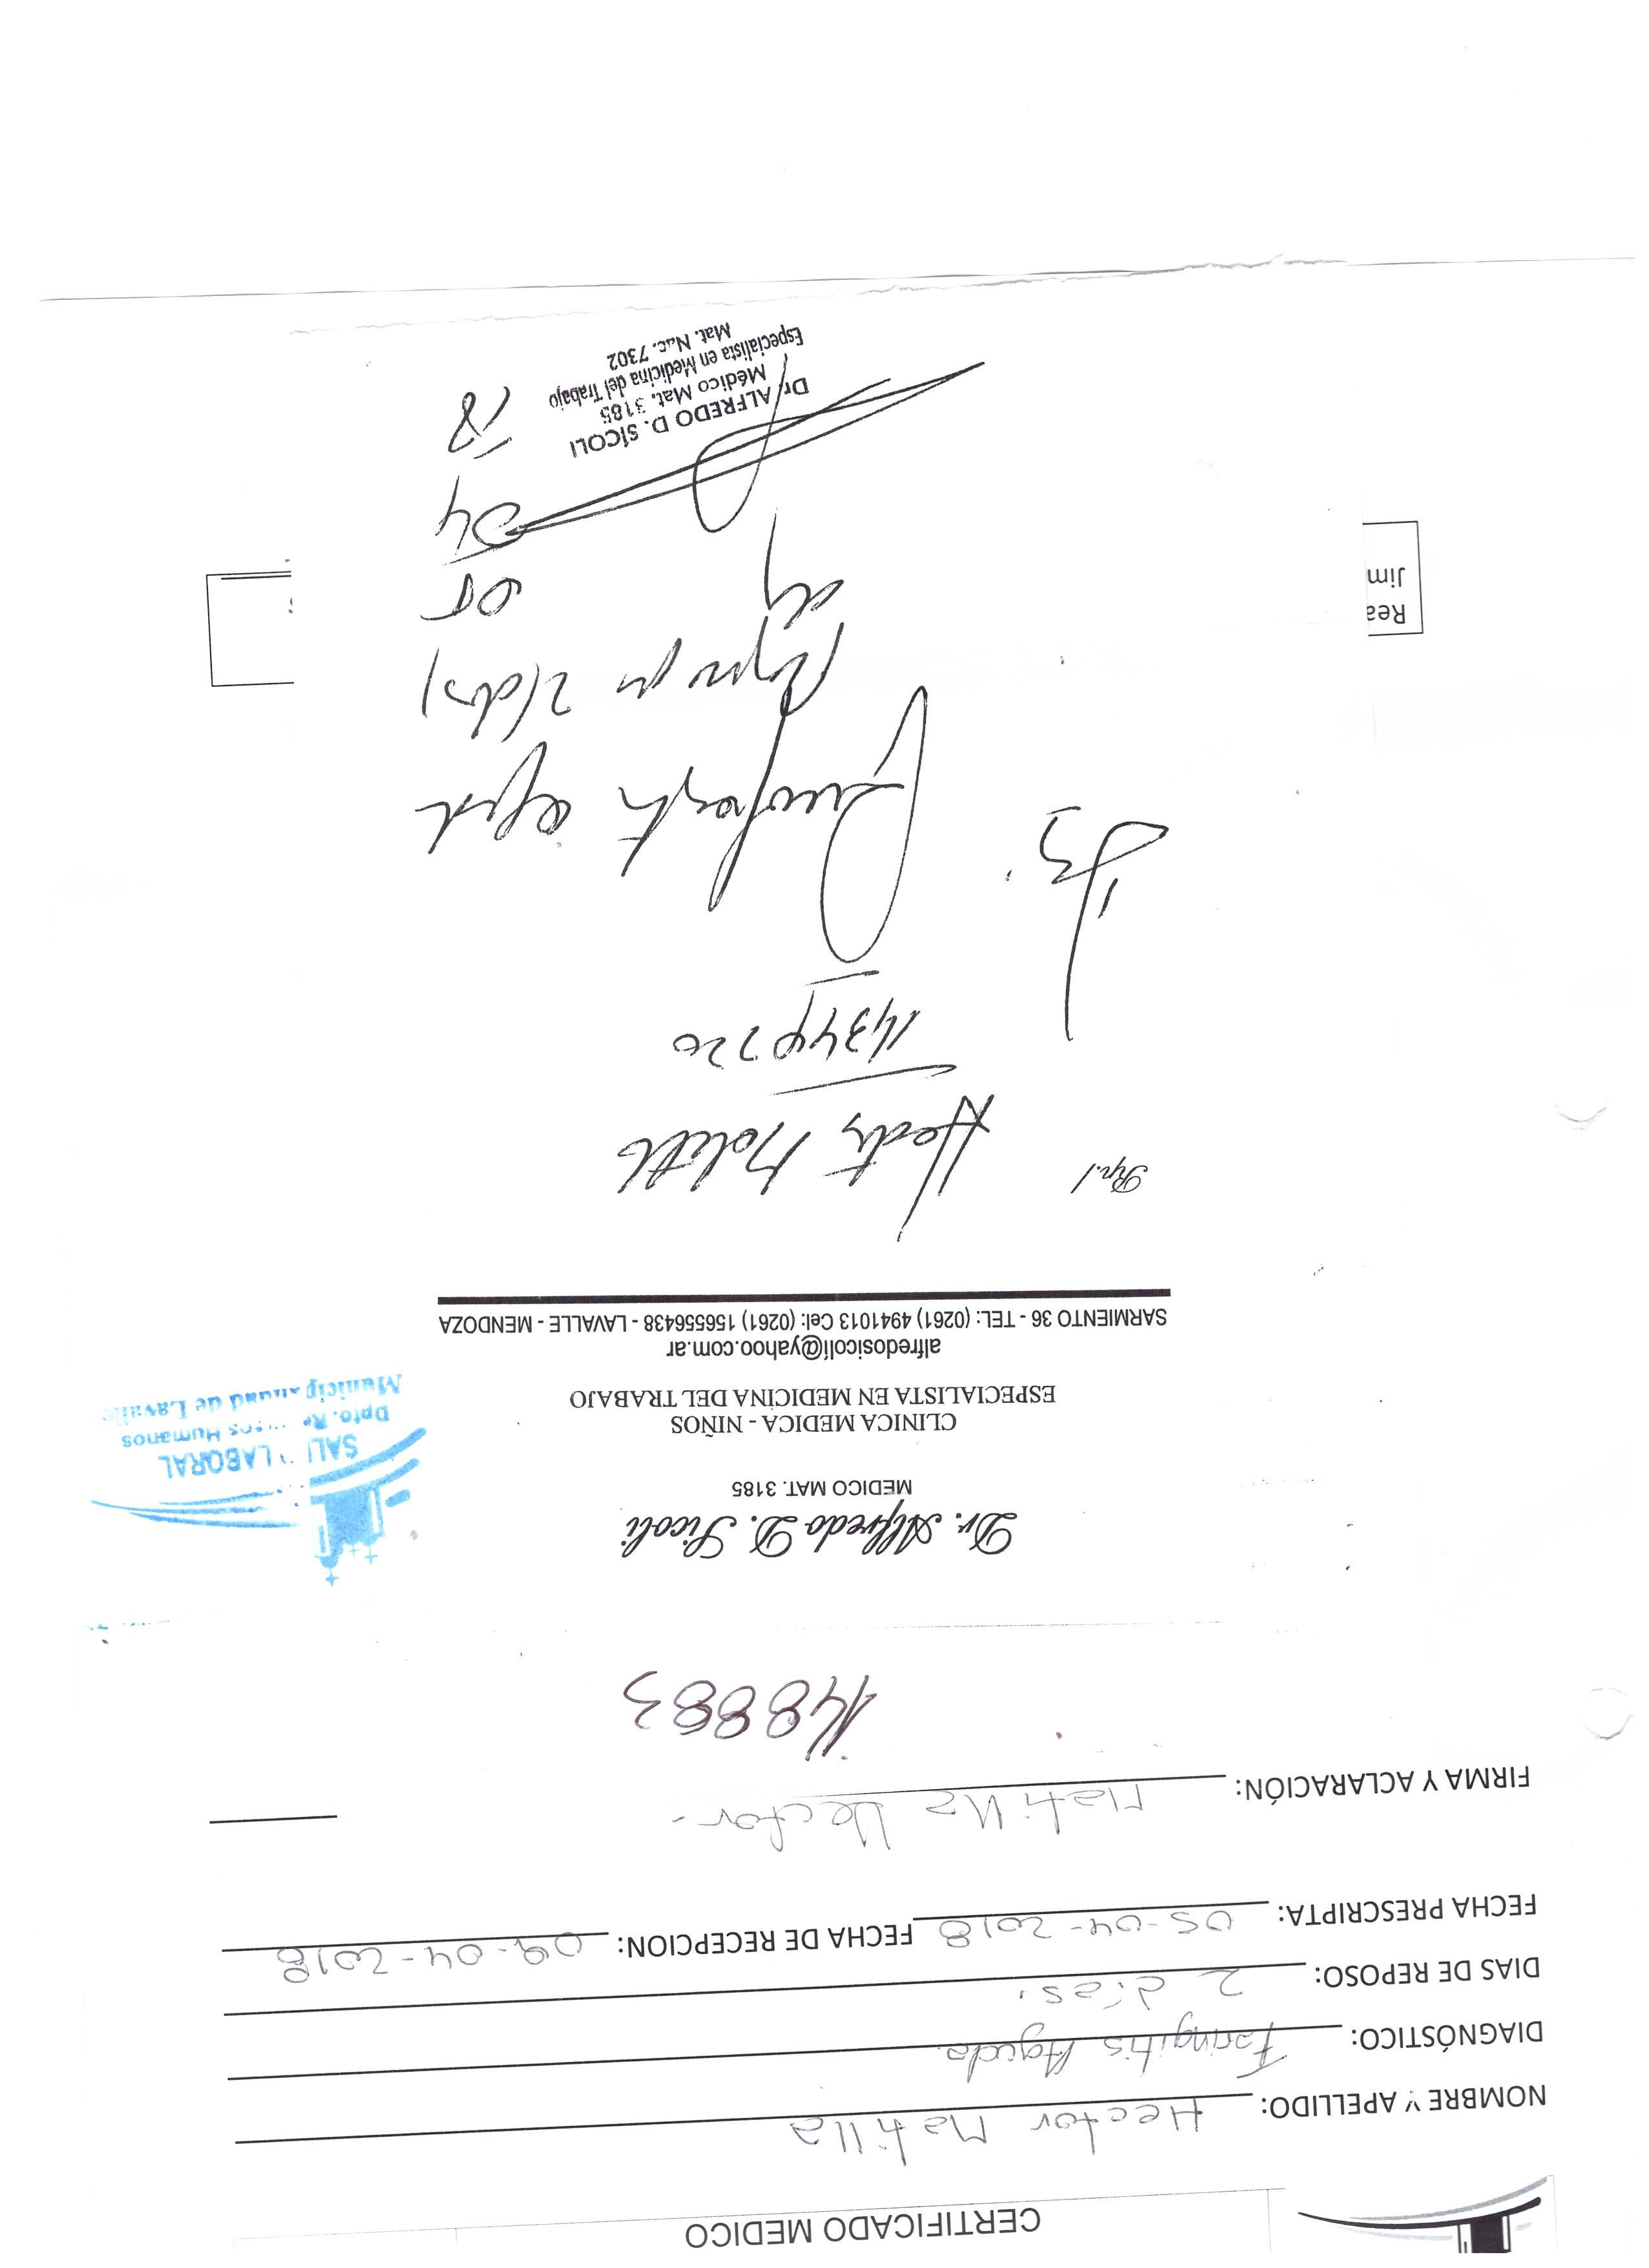 CERTIFICADO MEDICO
NOMBRE Y APELLIDO: Hector Matilla
DIAGNÓSTICO: Faringitis Aguda.
DIAS DE REPOSO: 2 días.
FECHA PRESCRIPTA: 05-04-2018 FECHA DE RECEPCION: 09-04-2018
FIRMA Y ACLARACIÓN: Matilla Hector.
148883
Dr. Alfredo D. Sícoli
MEDICO MAT. 3185
CLINICA MEDICA - NIÑOS
ESPECIALISTA EN MEDICINA DEL TRABAJO
alfredosicoli@yahoo.com.ar
SARMIENTO 36 - TEL: (0261) 4941013 Cel: (0261) 156556438 - LAVALLE - MENDOZA
LABORAL
Dpto. Humanos
de Lavalle
Rp./
2 (dos)
05
04
18
Rea
Jim
Dr. ALFREDO D. SÍCOLI
Médico Mat. 3185
Especialista en Medicina del Trabajo
Mat. Nac. 7302